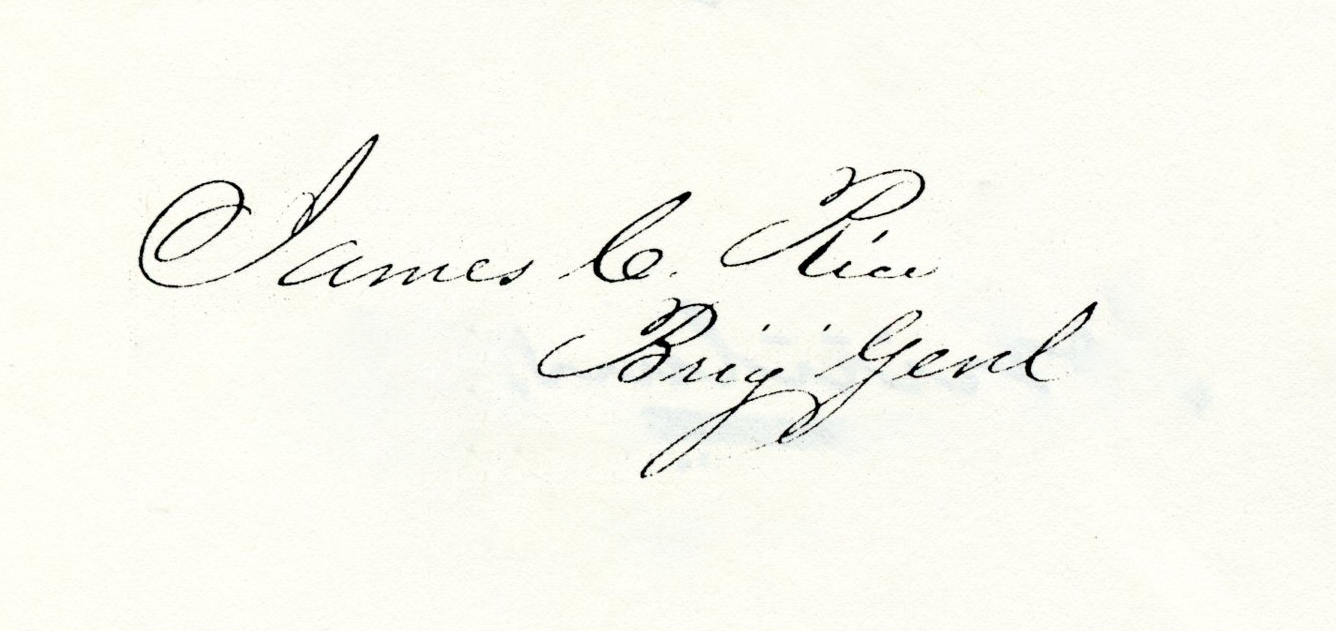 James C. Rice
Brig Genl